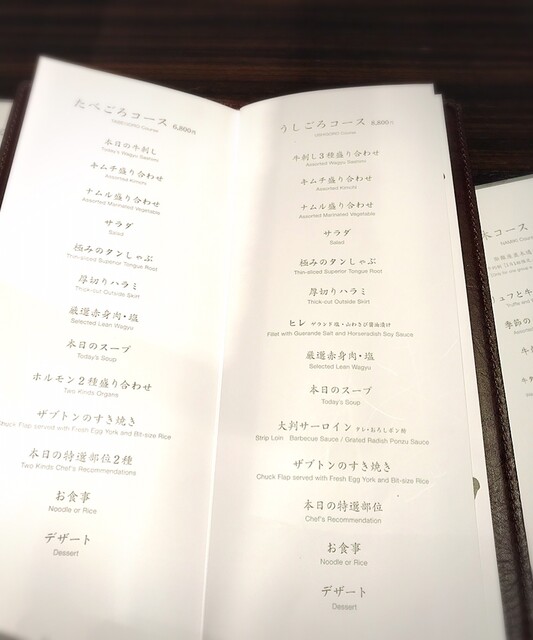 たべごろコース 6,800円
TABEGORO Course
本日の牛刺し
Today's Wagyu Sashimi
キムチ盛り合わせ
Assorted Kimchi
ナムル盛り合わせ
Assorted Marinated Vegetable
サラダ
Salad
極みのタンしゃぶ
Thin-sliced Superior Tongue Root
厚切りハラミ
Thick-cut Outside Skirt
厳選赤身肉・塩
Selected Lean Wagyu
本日のスープ
Today's Soup
ホルモン2種盛り合わせ
Two Kinds Organs
ザブトンのすき焼き
Chuck Flap served with Fresh Egg York and Bit-size Rice
本日の特選部位2種
Two Kinds Chef's Recommendations
お食事
Noodle or Rice
デザート
Dessert
うしごろコース 8,800円
USHIGORO Course
牛刺し3種盛り合わせ
Assorted Wagyu Sashimi
キムチ盛り合わせ
Assorted Kimchi
ナムル盛り合わせ
Assorted Marinated Vegetable
サラダ
Salad
極みのタンしゃぶ
Thin-sliced Superior Tongue Root
厚切りハラミ
Thick-cut Outside Skirt
ヒレ ゲランド塩・山わさび醤油漬け
Fillet with Guerande Salt and Horseradish Soy Sauce
厳選赤身肉・塩
Selected Lean Wagyu
本日のスープ
Today's Soup
大判サーロイン タレ・おろしポン酢
Strip Loin Barbecue Sauce / Grated Radish Ponzu Sauce
ザブトンのすき焼き
Chuck Flap served with Fresh Egg York and Bit-size Rice
本日の特選部位
Chef's Recommendation
お食事
Noodle or Rice
デザート
Dessert
木コース
NAMIKI Cour
ュフと牛
Truffle and
季節の
Assorted